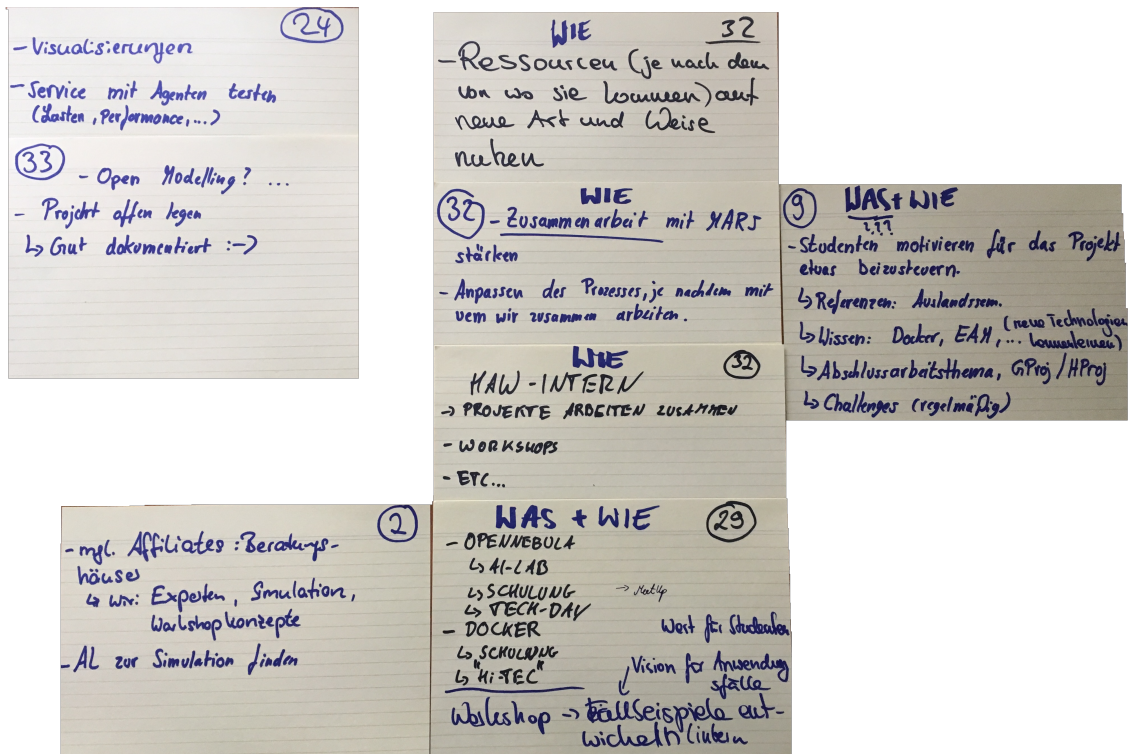 24
- Visualisierungen
- Service mit Agenten testen
(Lasten, Performance,...)
33
- Open Modelling? ...
- Projekt offen legen
↳ Gut dokumentiert :-)
WIE 32
- Ressourcen (je nach dem
von wo sie kommen) auf
neue Art und Weise
nutzen
WIE
32
- Zusammenarbeit mit MARS
stärken
- Anpassen des Prozesses, je nachdem mit
wem wir zusammen arbeiten.
WIE 32
HAW-INTERN
→ PROJEKTE ARBEITEN ZUSAMMEN
- WORKSHOPS
- ETC...
9 WAS + WIE
???
- Studenten motivieren für das Projekt
etwas beizusteuern.
↳ Referenzen: Auslandssem.
↳ Wissen: Docker, EAM, ... (neue Technologien
kennenlernen)
↳ Abschlussarbeitsthema, GProj / HProj
↳ Challenges (regelmäßig)
2
- mgl. Affiliates: Beratungs-
häuser
↳ wir: Experten, Simulation,
Workshopkonzepte
- AL zur Simulation finden
WAS + WIE 29
- OPENNEBULA
↳ AI-LAB
↳ SCHULUNG → MeetUp
↳ TECH-DAY
- DOCKER Wert für Studenten
↳ SCHULUNG
↳ "Hi-TEC" Vision für Anwendungs
fälle
Workshop → Fallbeispiele ent-
wickeln (intern